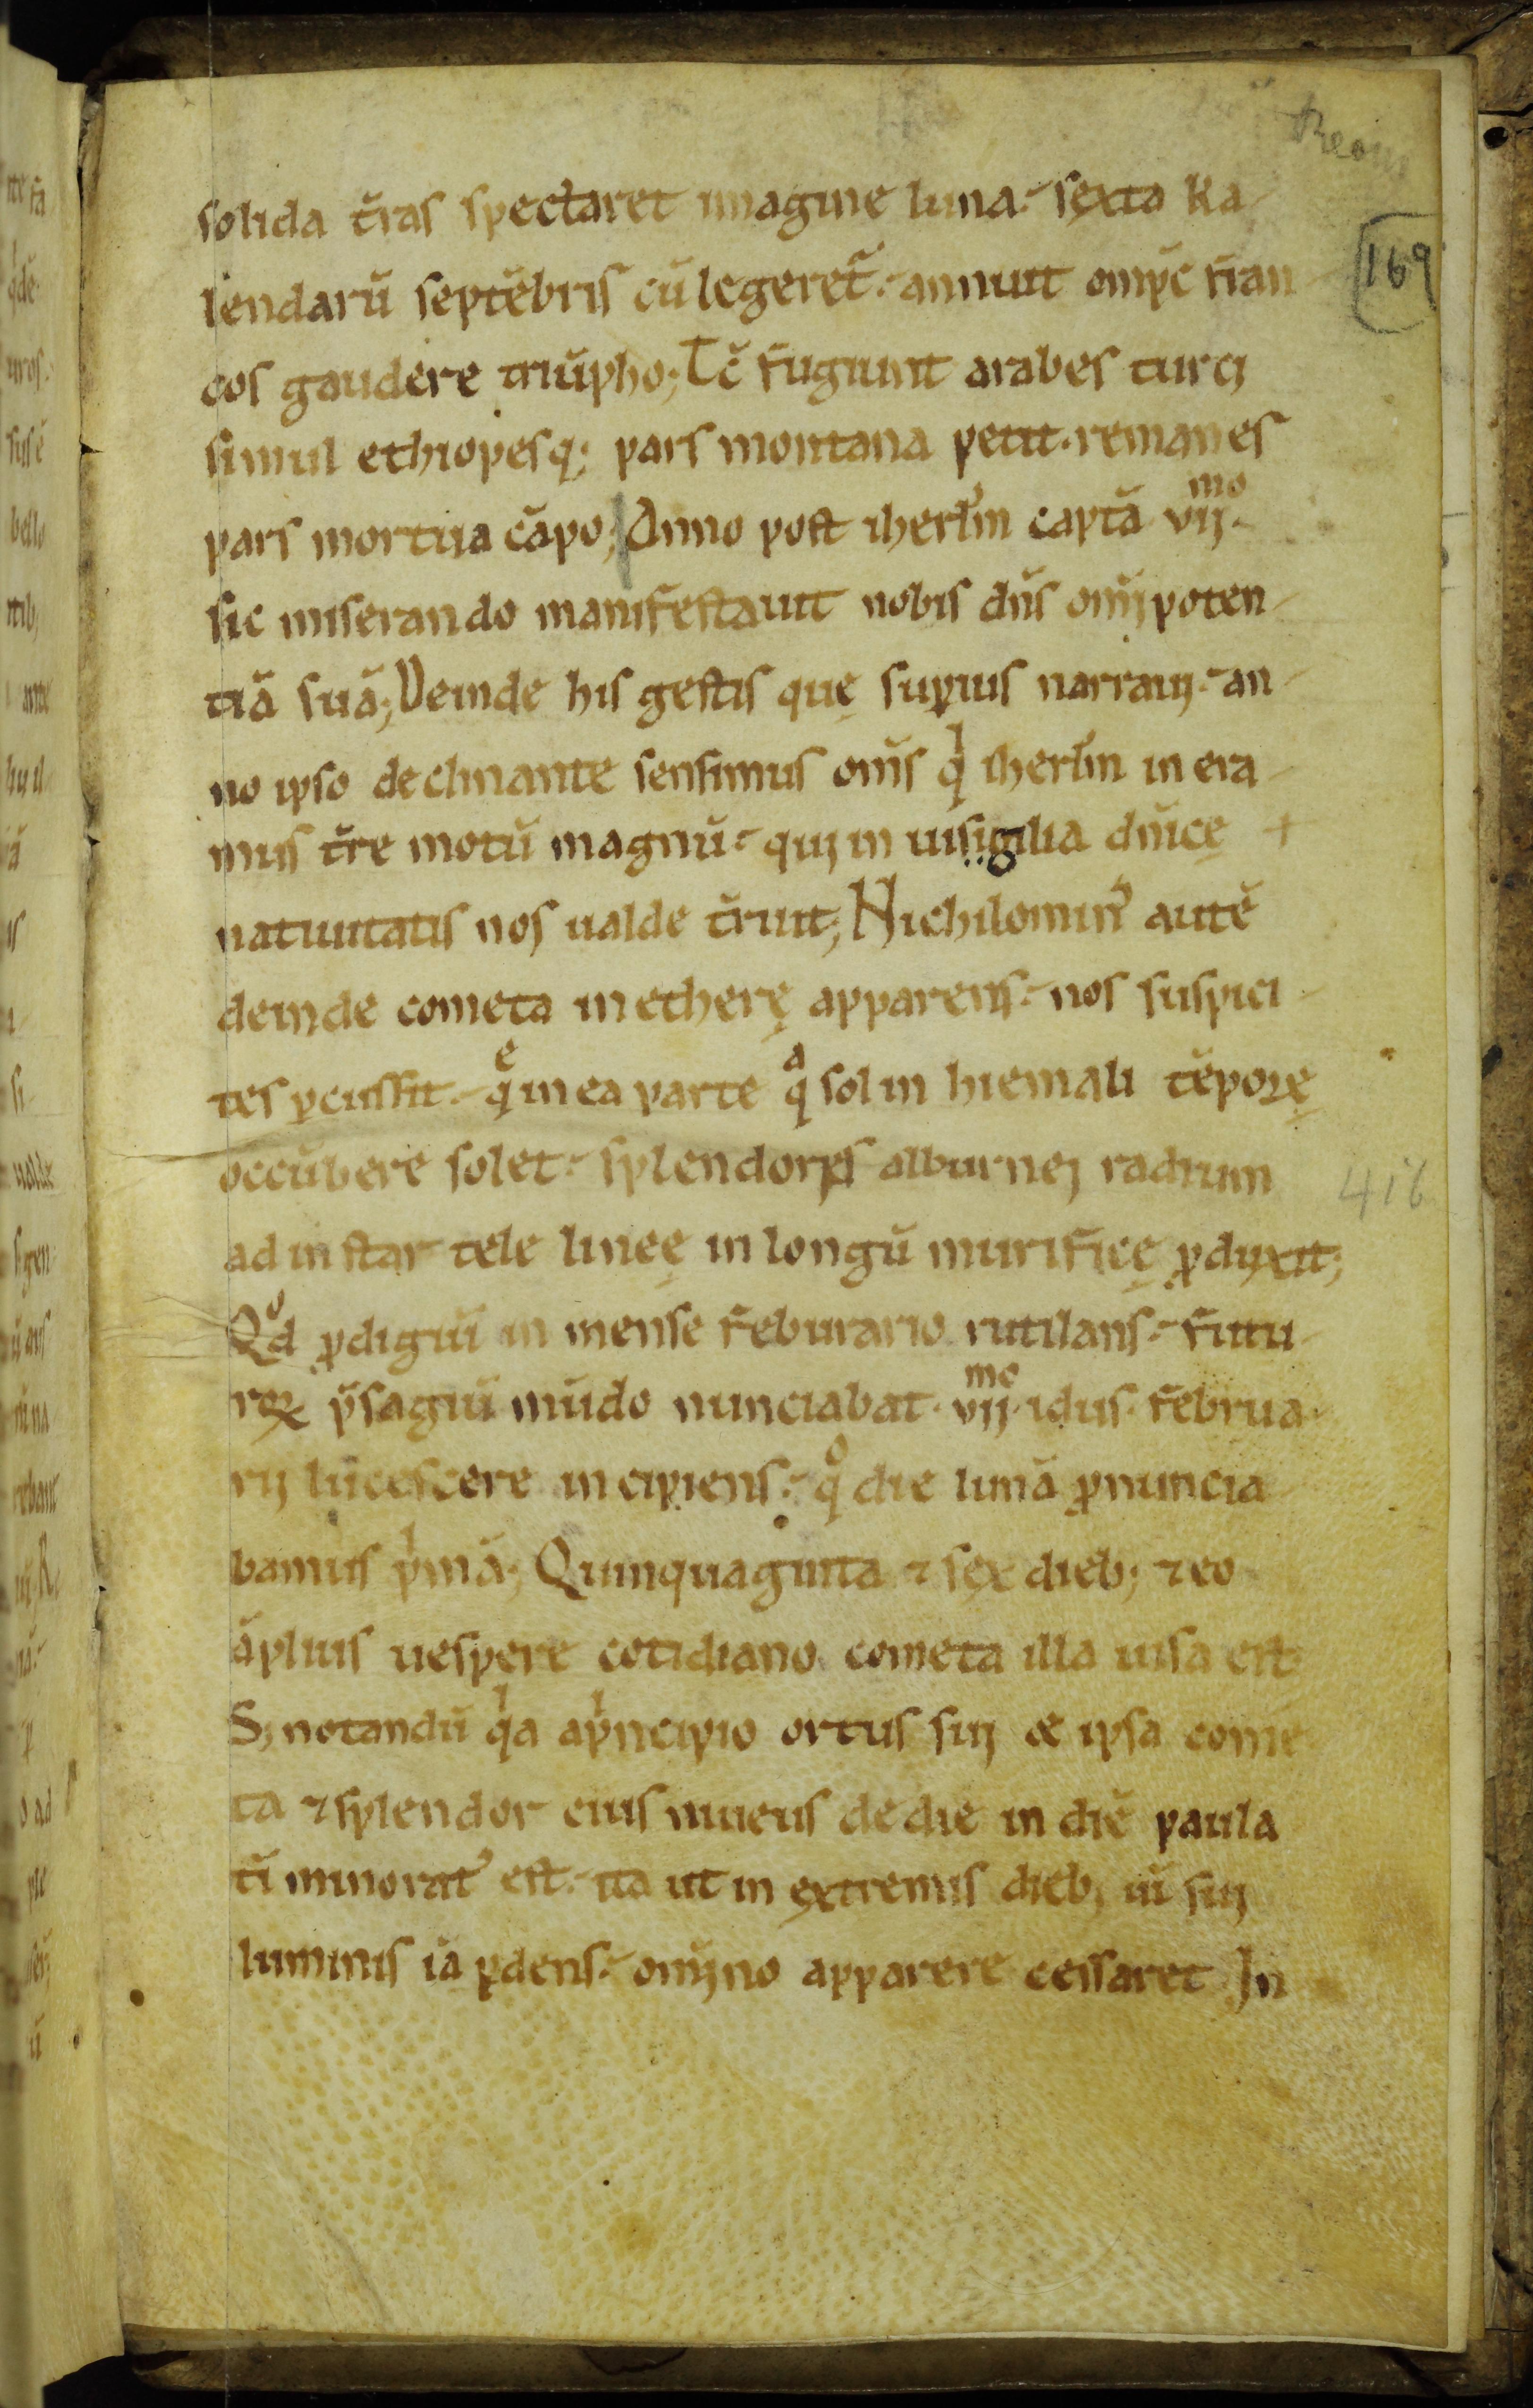 solida t̄ras spectaret imagine luna. sexta ka
lendarū septēbris cū legeret᷑. annuit om̄ps fran
cos gaudere triūpho; Tc̄ fugiunt arabes turcị
simul ethiopesq; pars montana petit. remanes
pars mortua cāpo; Anno post iherlm̄ captā vijmo.
sic miserando manifestauit nobis dn̄s om̄ipoten
tiā suā; Deinde his gestis quę sup̱ius narraui. an
no ipso declinante sensimus om̄s qi iherlm̄ in era
mus t̄re motū magnū. qui in uisigilia dn̄icę +
natiuitatis nos ualde t̄ruit; Nichilomin᾿ autē
deinde cometa in etherę apparens. nos suspici
tes p̱cussit. qe in ea parte qa sol in hiemali tēporę
occūbere solet. splendoris alburnei radium
ad instar tele lineę in longū mirificę ꝓduxit;
Qod ꝓdigiū in mense feburario rutilans. futu
roꝝ p̄sagiū mūdo nunciabat. vijmo. idus. februa
rij lucescere incipiens. qo die lunā ꝓnuncia
bamus pimā; Quinquaginta ⁊ sex dieb; ⁊ eo
āplius uespere cotidiano cometa illa uisa est
S; notandū qia apincipio ortus sui & ipsa come
ta ⁊ splendor eius niueus de die in diē paula
tī minorat᾿ est. ita ut in extremis dieb; uī sui
luminis iā p̱dens. om̄ino apparere cessaret In
169
416